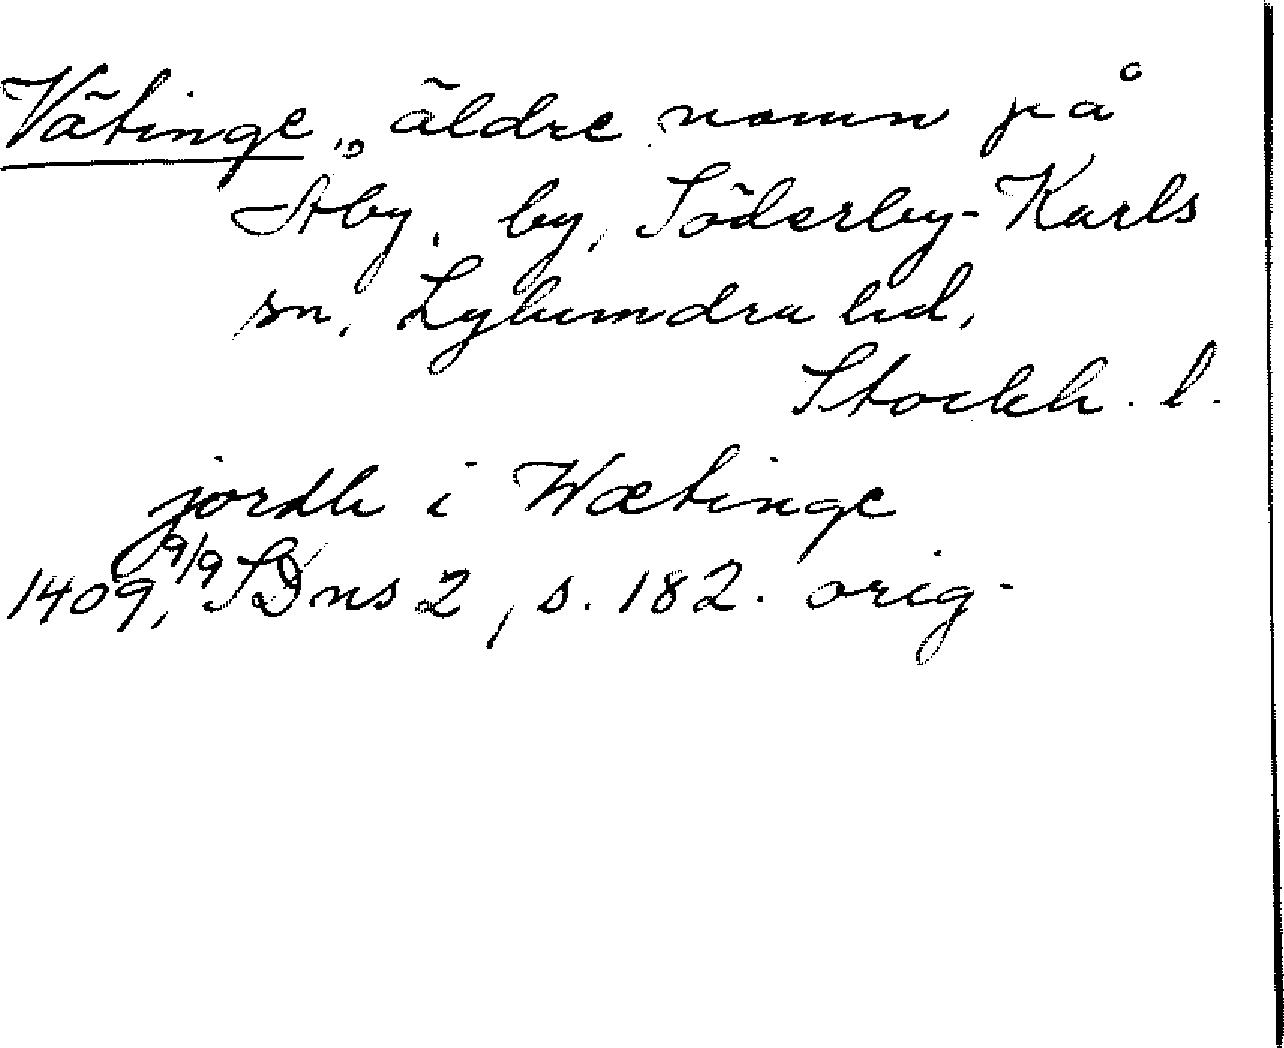 Vätinge, äldre namn på
Åby, by, Söderby-Karls
sn, Lyhundra hd,
Stockh. l.
jordh i Wætinge
1409, 9/9 SDns 2, s. 182. orig.